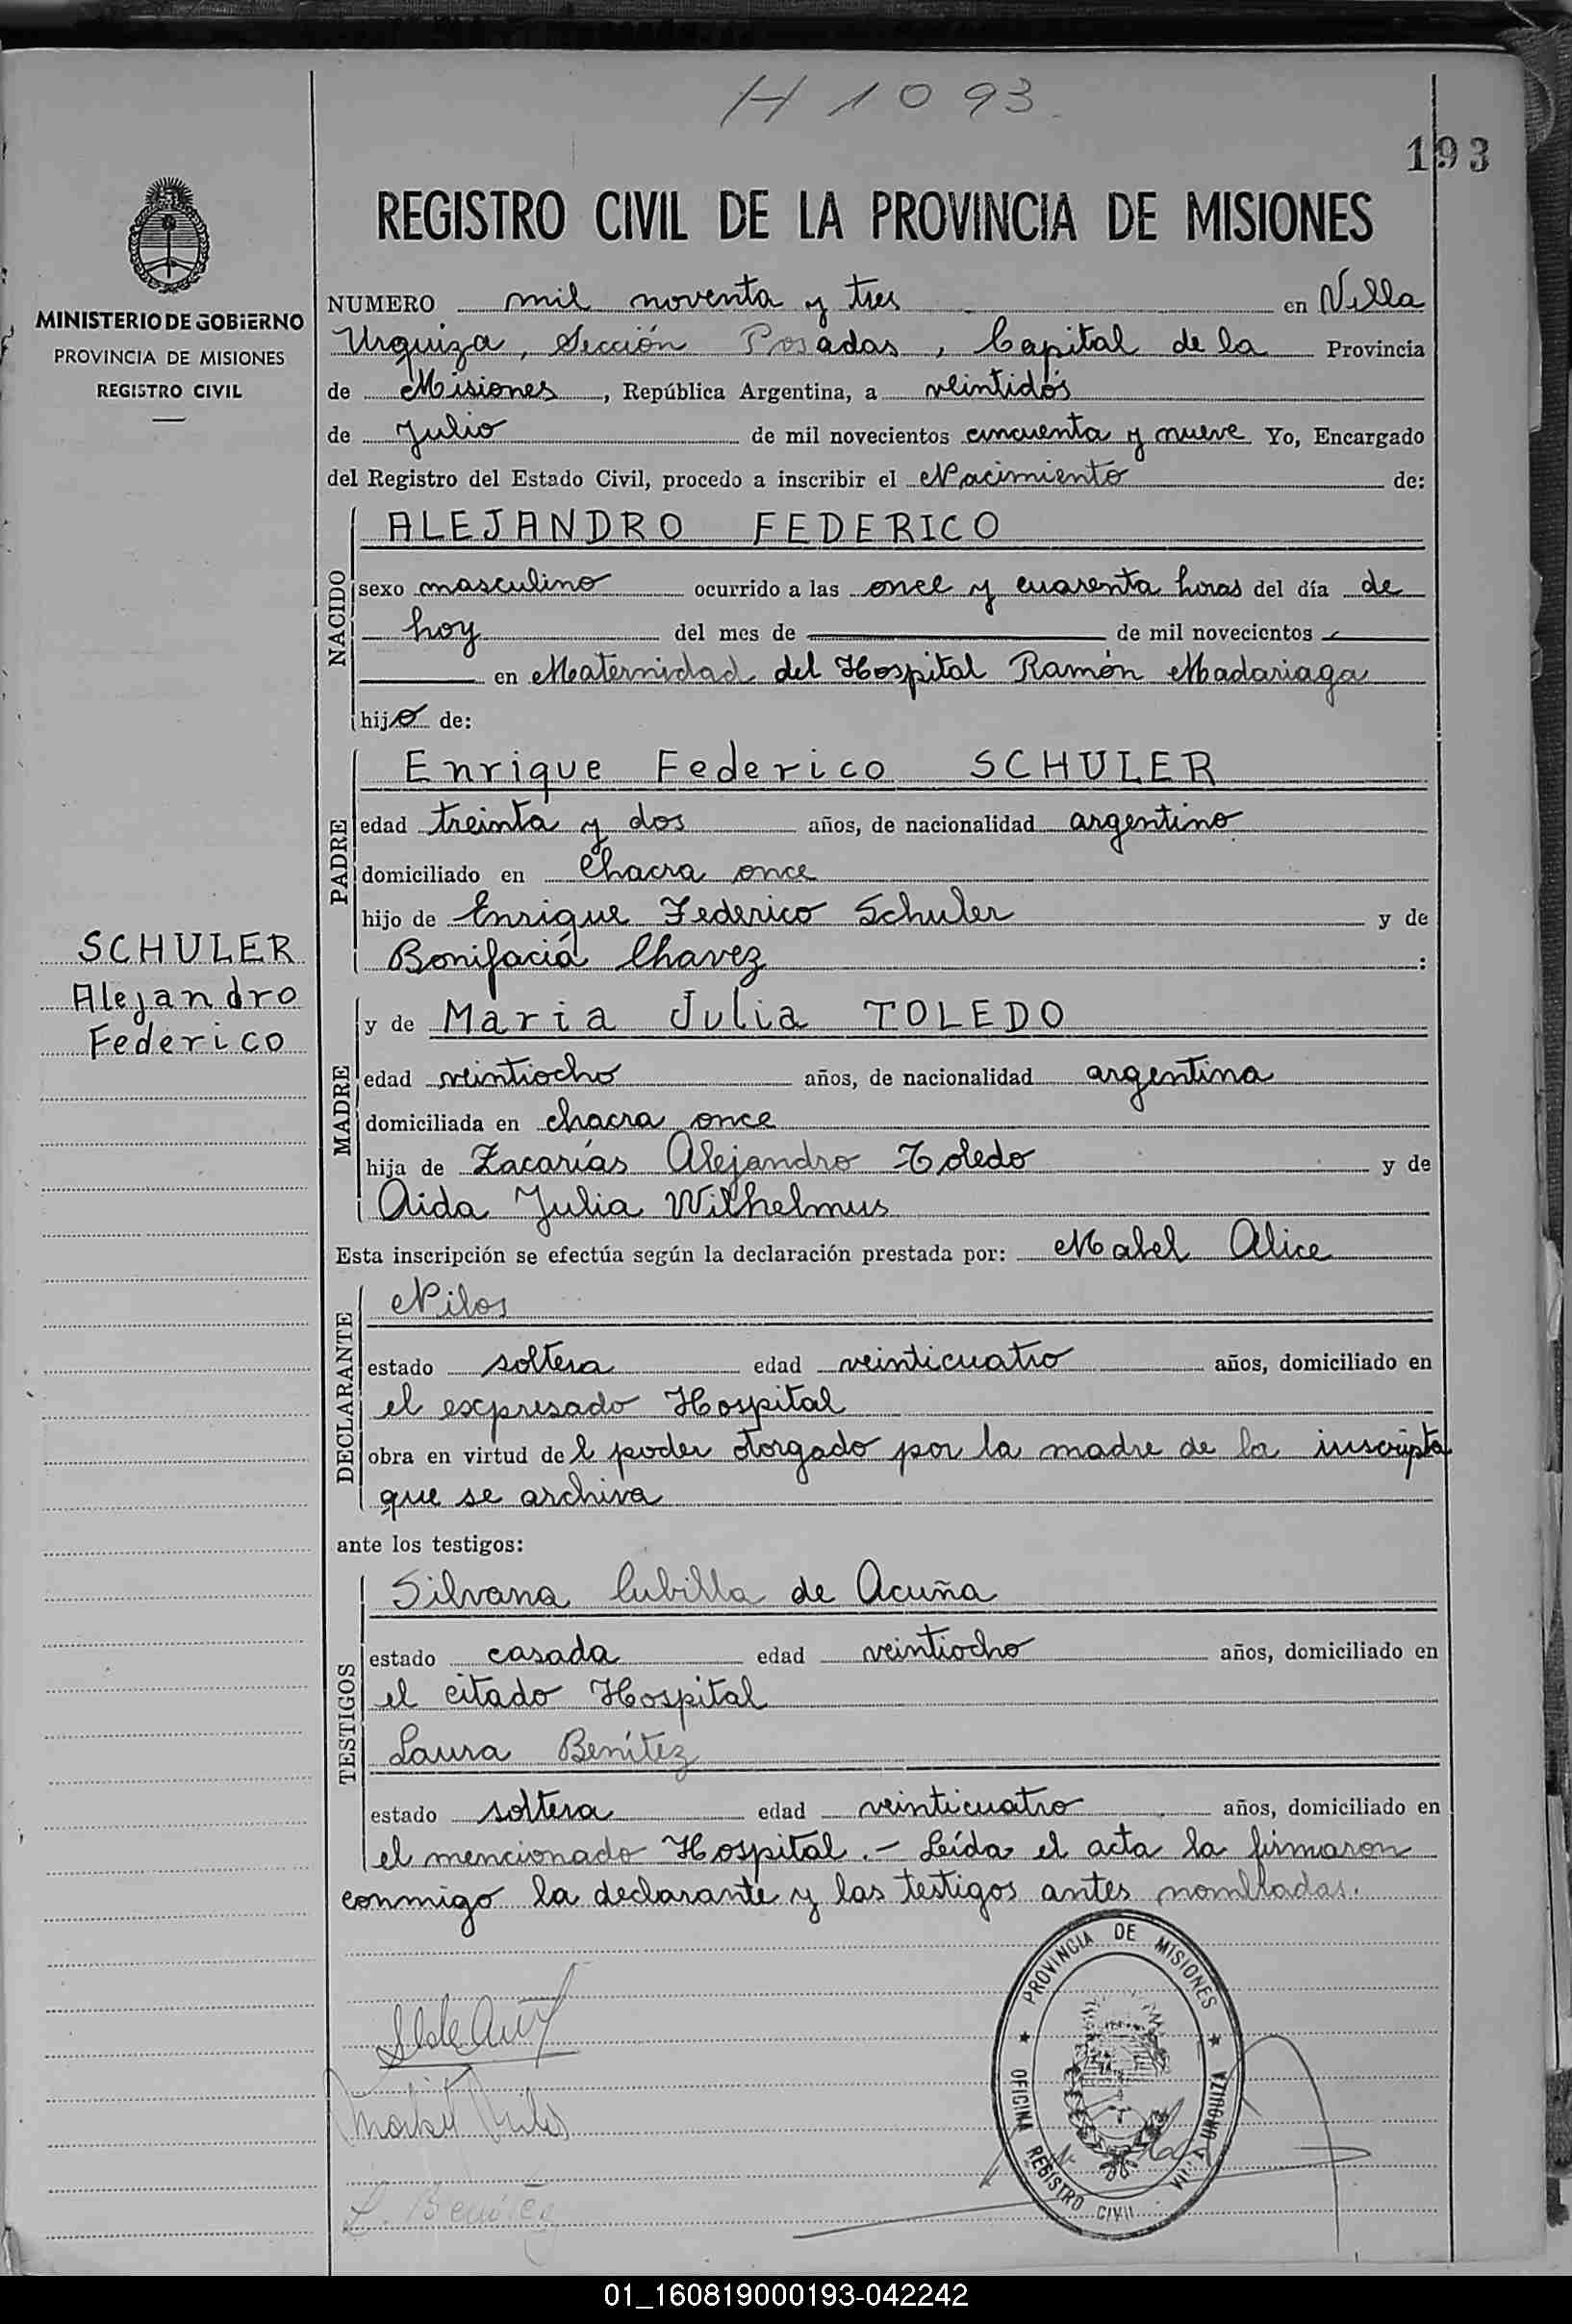 H 1093
193
REGISTRO CIVIL DE LA PROVINCIA DE MISIONES
MINISTERIO DE GOBIERNO
PROVINCIA DE MISIONES
REGISTRO CIVIL
NUMERO mil noventa y tres en Villa
Urquiza, Sección Posadas, Capital de la Provincia
de Misiones, República Argentina, a veintidós
de Julio de mil novecientos cincuenta y nueve Yo, Encargado
del Registro del Estado Civil, procedo a inscribir el Nacimiento de:
NACIDO
ALEJANDRO FEDERICO
sexo masculino ocurrido a las once y cuarenta horas del día de
hoy del mes de de mil novecientos
en Maternidad del Hospital Ramón Madariaga
hijo de:
PADRE
Enrique Federico SCHULER
edad treinta y dos años, de nacionalidad argentino
domiciliado en Chacra once
hijo de Enrique Federico Schuler y de
Bonifacia Chavez :
SCHULER
Alejandro
Federico
MADRE
y de Maria Julia TOLEDO
edad veintiocho años, de nacionalidad argentina
domiciliada en chacra once
hija de Zacarías Alejandro Toledo y de
Aida Julia Wilhelmus
Esta inscripción se efectúa según la declaración prestada por: Mabel Alice
DECLARANTE
Nilos
estado soltera edad veinticuatro años, domiciliado en
el expresado Hospital
obra en virtud de l poder otorgado por la madre de la inscripta
que se archiva
ante los testigos:
TESTIGOS
Silvana Cubilla de Acuña
estado casada edad veintiocho años, domiciliado en
el citado Hospital
Laura Benítez
estado soltera edad veinticuatro años, domiciliado en
el mencionado Hospital.- Leída el acta la firmaron
conmigo la declarante y las testigos antes nombradas.
PROVINCIA DE MISIONES
OFICINA REGISTRO CIVIL VILLA URQUIZA
L. Benítez
01_160819000193-042242